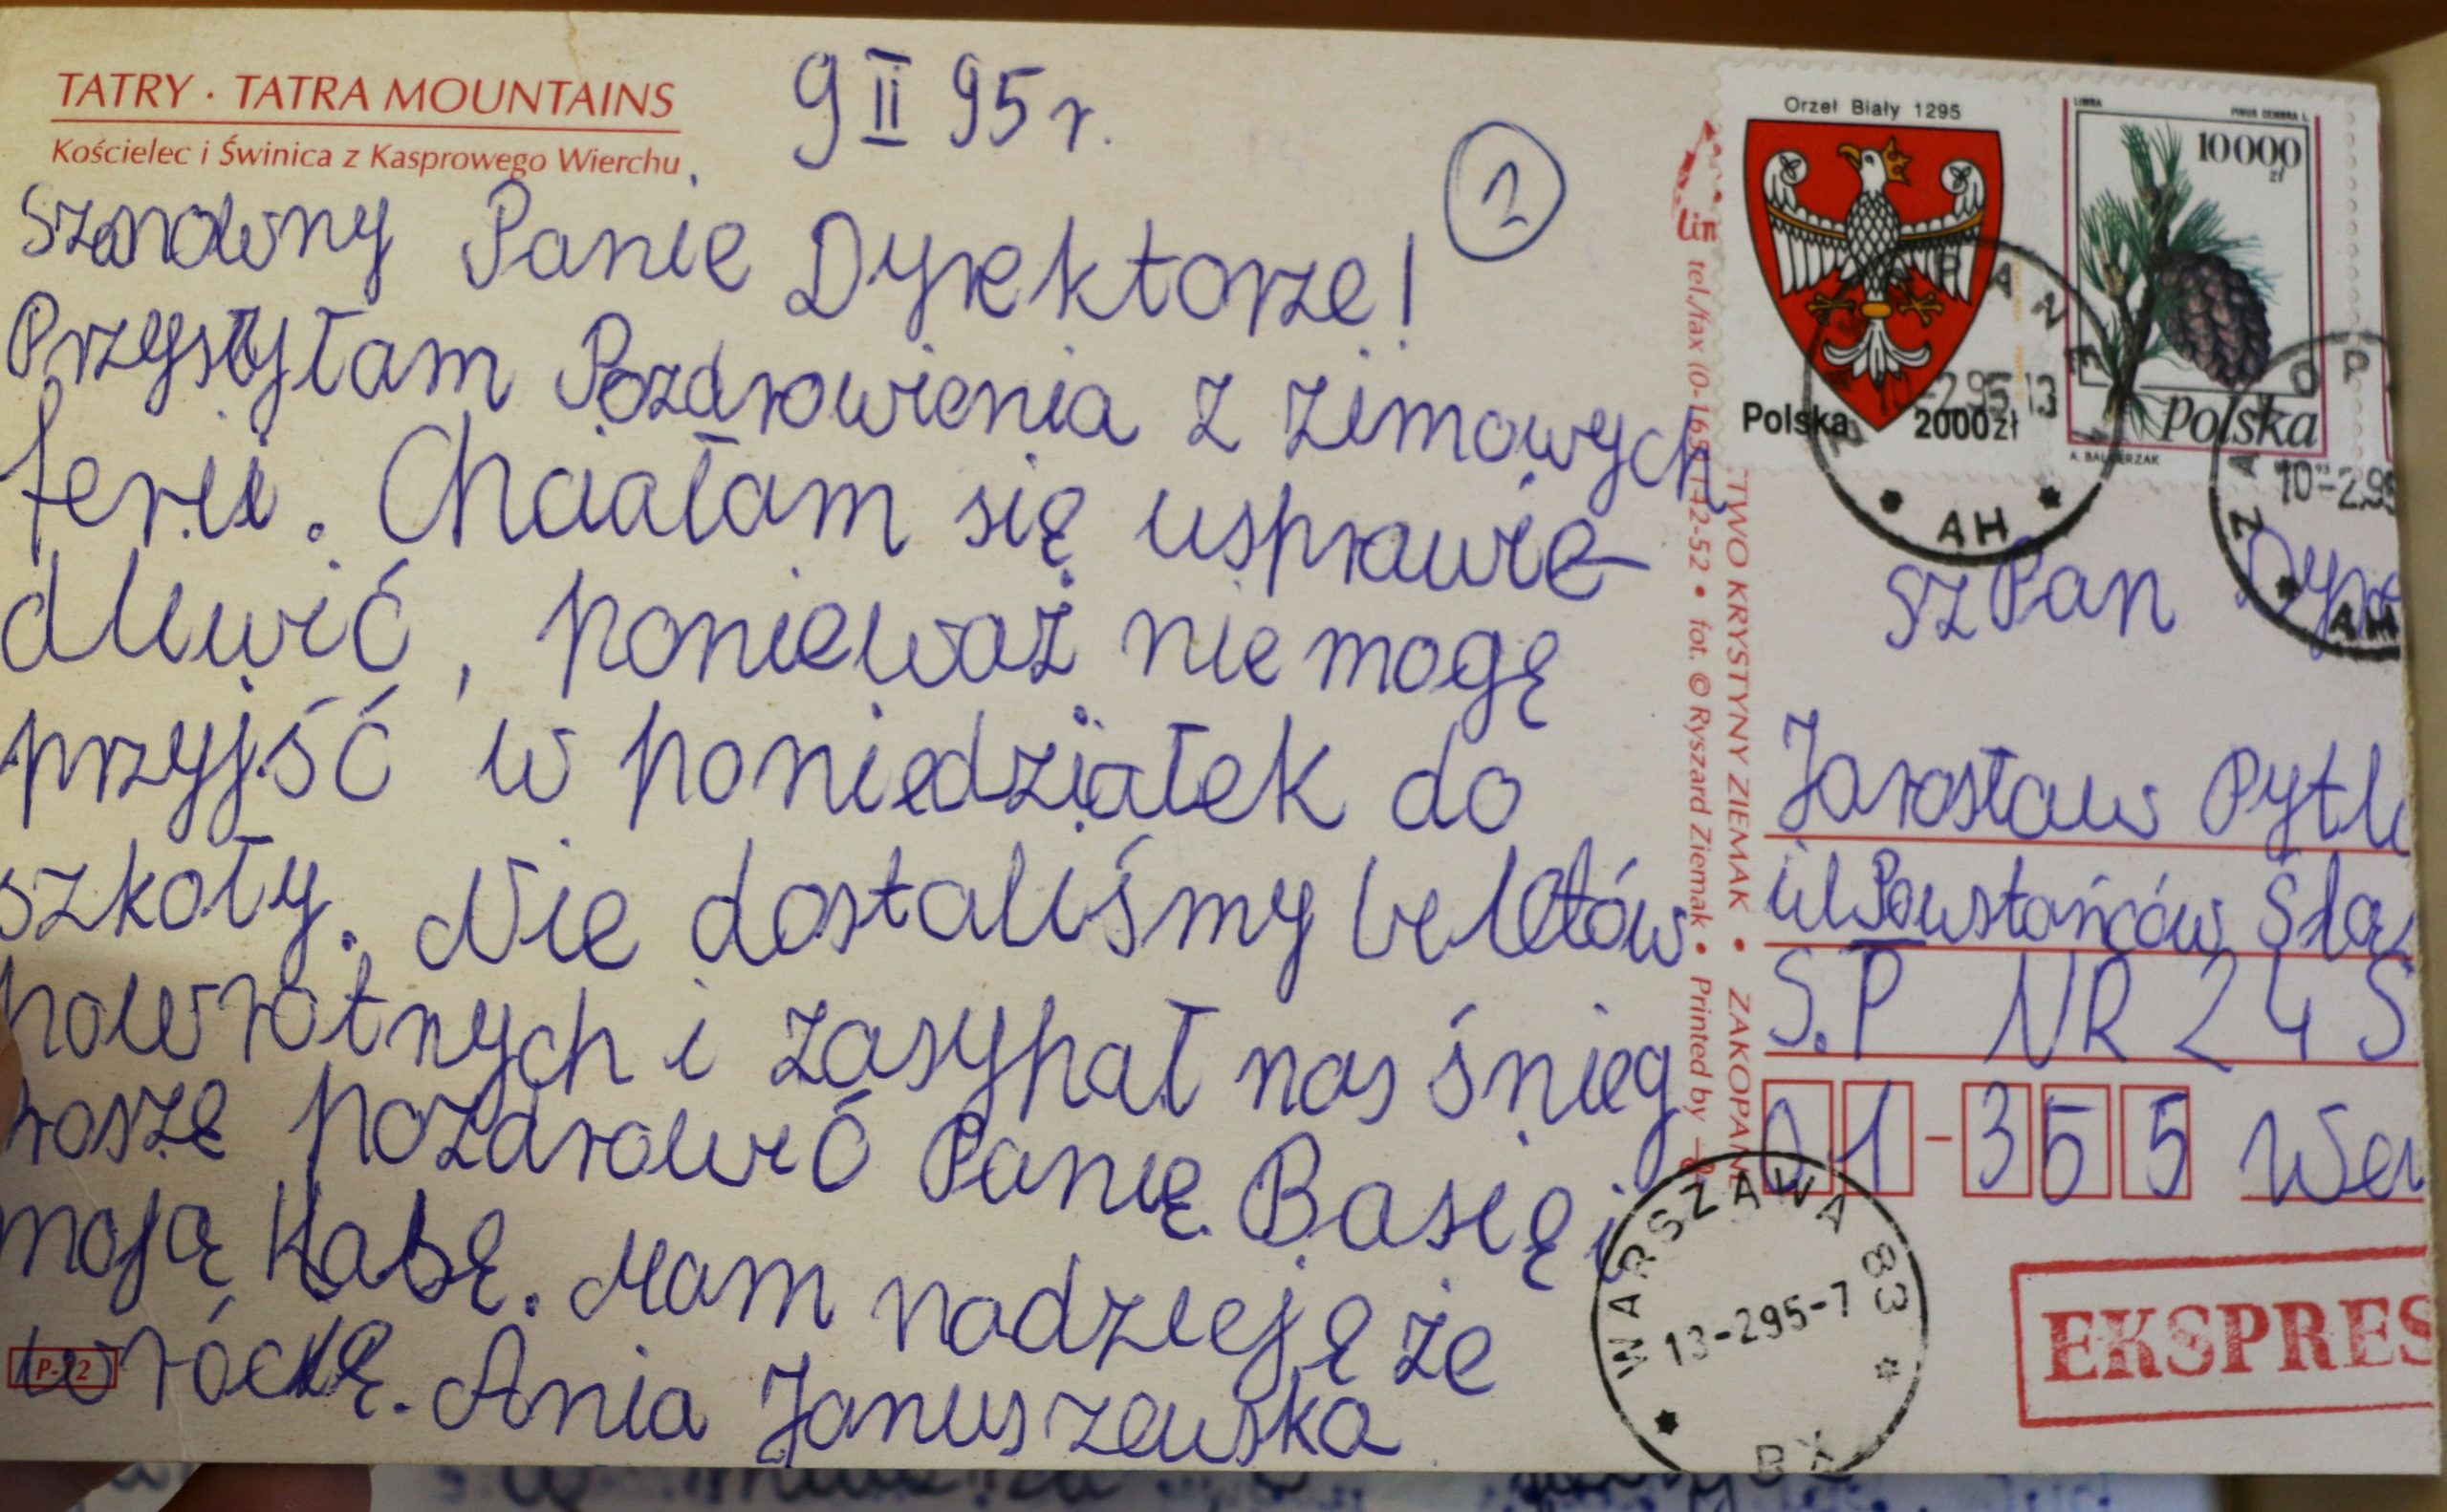 TATRY · TATRA MOUNTAINS
Kościelec i Świnica z Kasprowego Wierchu
9 II 95 r.
2
Szanowny Panie Dyrektorze!
Przysyłam Pozdrowienia z zimowych
ferii. Chciałam się usprawie-
dliwić, ponieważ nie mogę
przyjść w poniedziałek do
szkoły. Nie dostaliśmy biletów
powrotnych i zasypał nas śnieg
roszę pozdrowić Panię Basię i
moją Kasię. Mam nadzieję że
wrócę. Ania Januszewska
P-22
tel./fax (0-165) 142-52 • fot. © Ryszard Ziemak • Printed by
TWO KRYSTYNY ZIEMAK • ZAKOPANE
Orzeł Biały 1295
Polska 2000 zł
LIMBA PINUS CEMBRA L.
10000 zł
polska
A. BALCERZAK
ZAKOPANE
-2.95.13
AH
10-2.95
AH
Sz Pan Dyr
Jarosław Pytl
ul PowstańcówŚlą
S.P NR 24 S
01-355 Wa
WARSZAWA 83
13-2.95-7
BX
EKSPRES